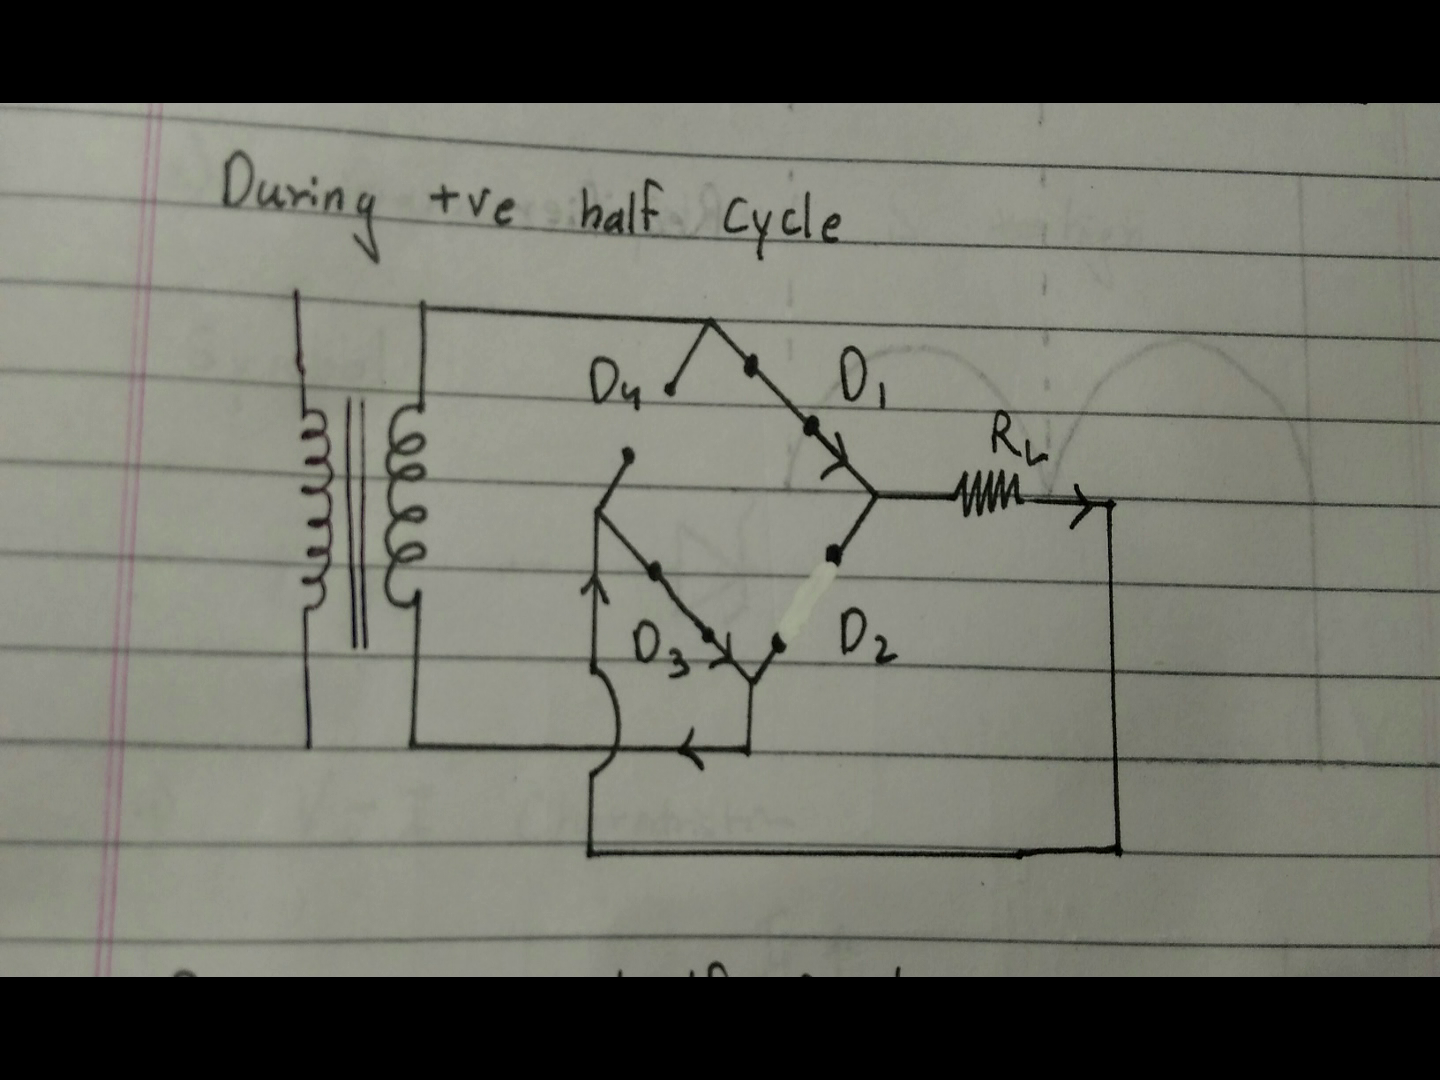 During +ve half cycle
D4
D1
RL
D3
D2